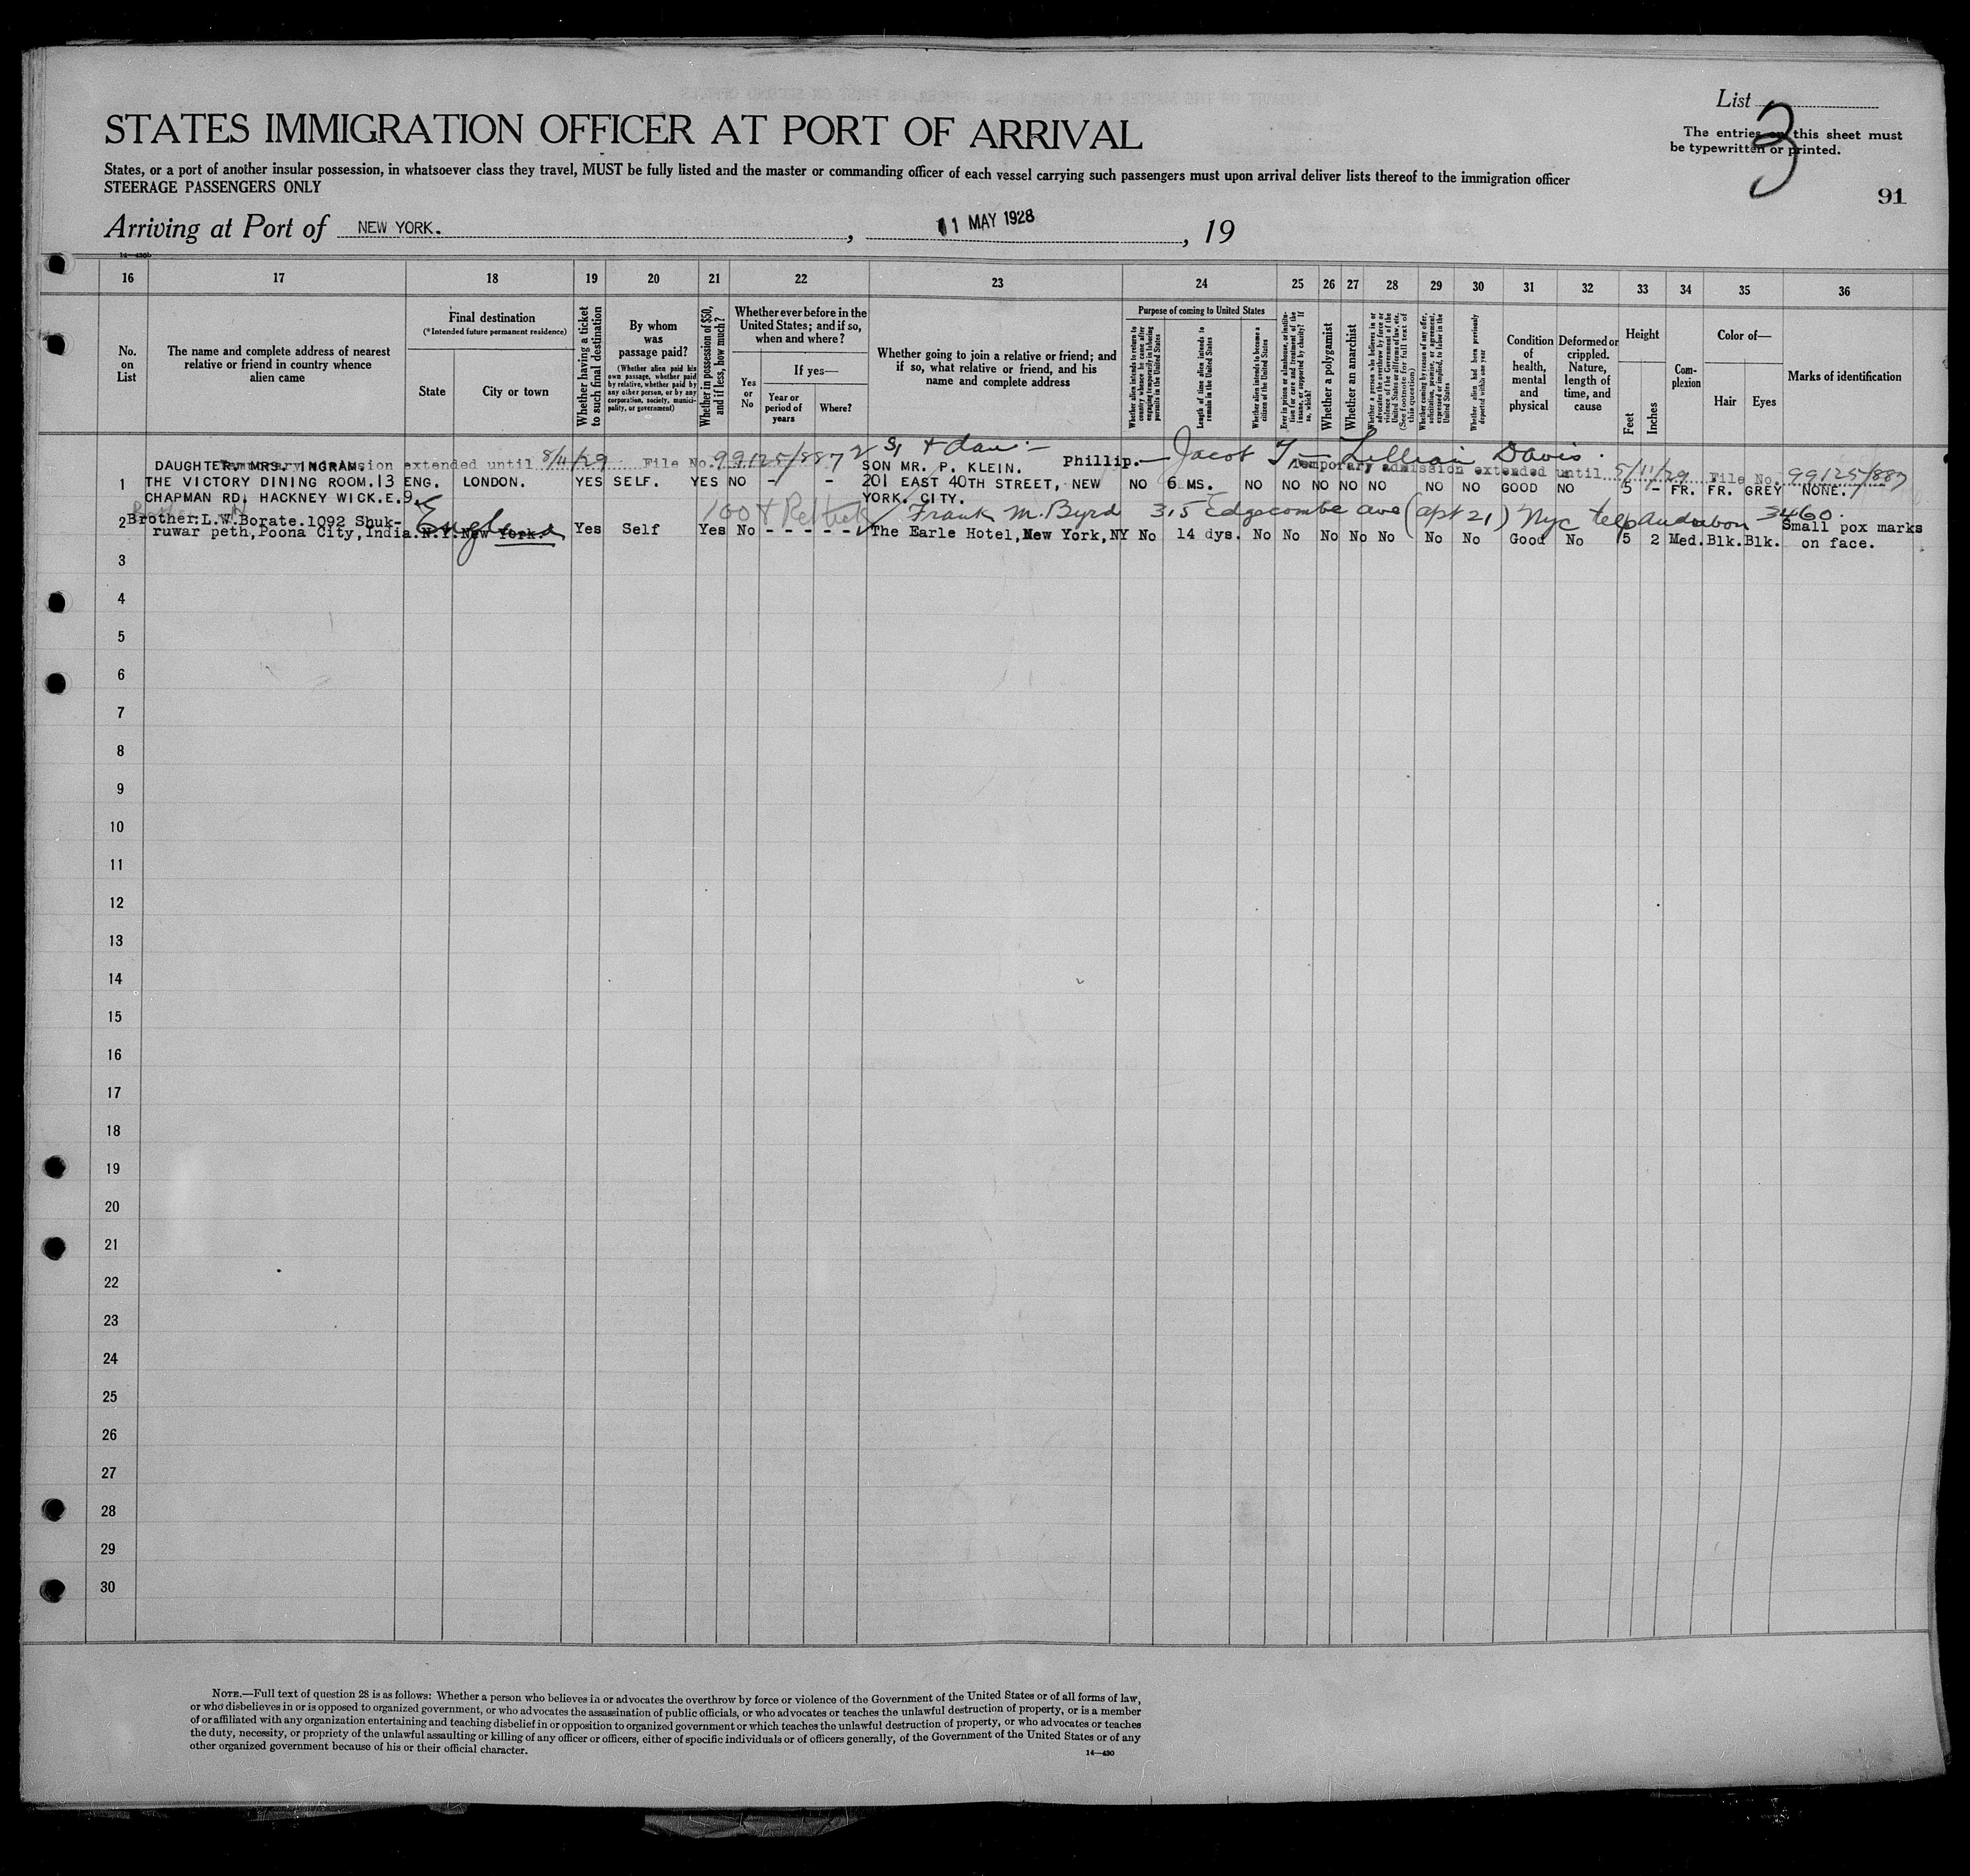 List 3
STATES IMMIGRATION OFFICER AT PORT OF ARRIVAL
The entries on this sheet must
be typewritten or printed.
States, or a port of another insular possession, in whatsoever class they travel, MUST be fully listed and the master or commanding officer of each vessel carrying such passengers must upon arrival deliver lists thereof to the immigration officer
STEERAGE PASSENGERS ONLY
91
Arriving at Port of NEW YORK. , 11 MAY 1928 , 19
14—430b
16 17 18 19 20 21 22 23 24 25 26 27 28 29 30 31 32 33 34 35 36
No. on List
The name and complete address of nearest relative or friend in country whence alien came
Final destination
(*Intended future permanent residence)
State
City or town
Whether having a ticket to such final destination
By whom was passage paid?
(Whether alien paid his own passage, whether paid by relative, whether paid by any other person, or by any corporation, society, municipality, or government)
Whether in possession of $50, and if less, how much?
Whether ever before in the United States; and if so, when and where?
Yes or No
If yes—
Year or period of years
Where?
Whether going to join a relative or friend; and if so, what relative or friend, and his name and complete address
Purpose of coming to United States
Whether alien intends to return to country whence he came after engaging temporarily in laboring pursuits in the United States
Length of time alien intends to remain in the United States
Whether alien intends to become a citizen of the United States
Ever in prison or almshouse, or institution for care and treatment of the insane, or supported by charity? If so, which?
Whether a polygamist
Whether an anarchist
Whether a person who believes in or advocates the overthrow by force or violence of the Government of the United States or all forms of law, etc. (See footnote for full text of this question)
Whether coming by reason of any offer, solicitation, promise, or agreement, expressed or implied, to labor in the United States
Whether alien had been previously deported within one year
Condition of health, mental and physical
Deformed or crippled. Nature, length of time, and cause
Height
Feet
Inches
Complexion
Color of—
Hair
Eyes
Marks of identification
2 S, + dau — Jacob Lillian Davis.
Temporary admission extended until 8/11/29 File No. 99125/887
Temporary admission extended until 5/11/29 File No. 99125/887
DAUGHTER. MRS. INGRAM. SON MR. P. KLEIN. Phillip.
1 THE VICTORY DINING ROOM.13 ENG. LONDON. YES SELF. YES NO - - 201 EAST 40TH STREET, NEW NO 6 MS. NO NO NO NO NO NO NO GOOD NO 5 - FR. FR. GREY NONE.
CHAPMAN RD. HACKNEY WICK.E.9. YORK. CITY.
England 100 Frank M. Byrd 315 Edgecombe ave (apt 21) Nyc telp Audubon 3460.
2 Brother:L.W.Borate.1092 Shuk- Small pox marks
ruwar peth,Poona City,India. N.Y. New York. Yes Self Yes No - - - - - The Earle Hotel,New York,NY No 14 dys. No No No No No No No Good No 5 2 Med. Blk. Blk. on face.
3
4
5
6
7
8
9
10
11
12
13
14
15
16
17
18
19
20
21
22
23
24
25
26
27
28
29
30
NOTE.—Full text of question 28 is as follows: Whether a person who believes in or advocates the overthrow by force or violence of the Government of the United States or of all forms of law,
or who disbelieves in or is opposed to organized government, or who advocates the assassination of public officials, or who advocates or teaches the unlawful destruction of property, or is a member
of or affiliated with any organization entertaining and teaching disbelief in or opposition to organized government or which teaches the unlawful destruction of property, or who advocates or teaches
the duty, necessity, or propriety of the unlawful assaulting or killing of any officer or officers, either of specific individuals or of officers generally, of the Government of the United States or of any
other organized government because of his or their official character.
14—430